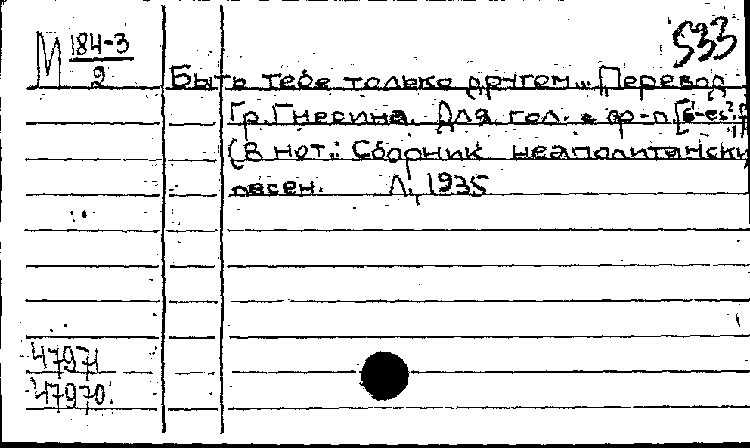 М 184-3
2
533
Быть тебе только другом... Перевод
Гр. Гнесина. Для гол. с ф-п.
(В нот.: Сборник неаполитански
песен. Л., 1935
47971
47970.